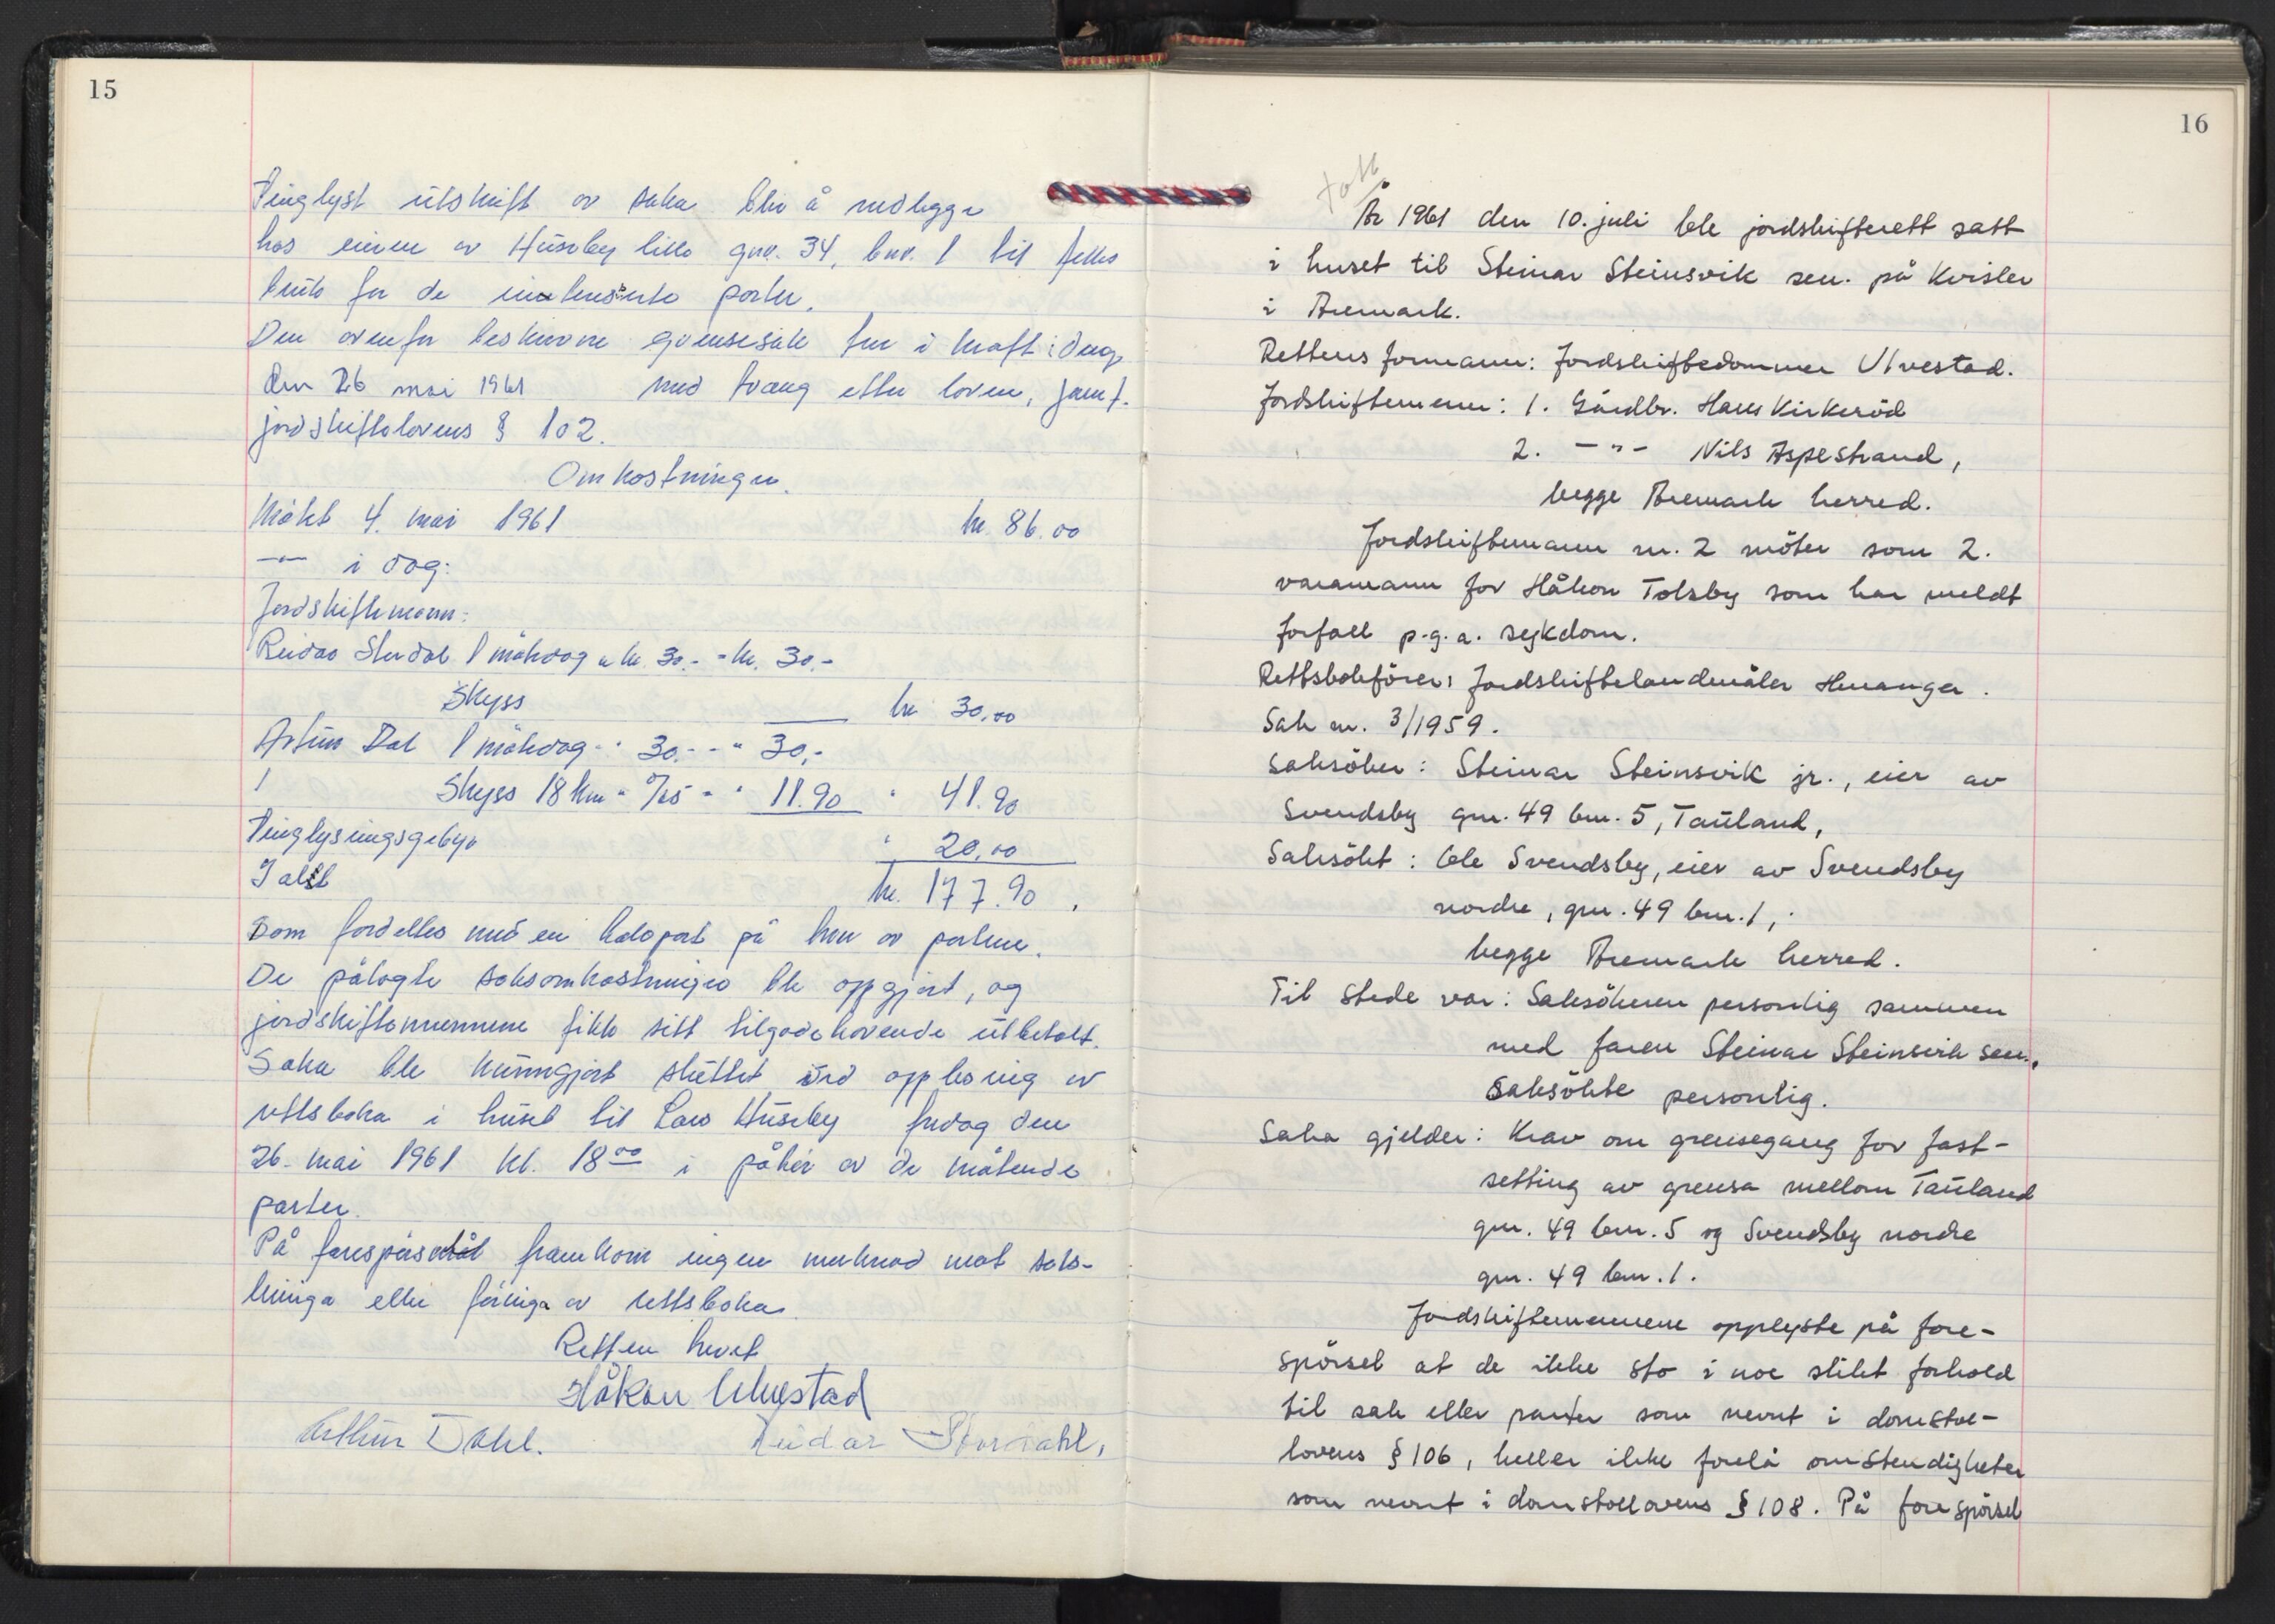 15
Tinglyst utskrift av saka blir å nedlegge
hos eieren av Huseby lille gnr. 34, bnr. 1 til felles
bruk for de interesserte parter.
Den ovenfor beskrevne grensesak trer i kraft i dag
den 26 mai 1961 med tvang etter loven, jamf.
jordskiftelovens § 102.
Omkostninger.
Møtet 4. mai 1961 kr. 86.00
—"— i dag:
Jordskiftemenn:
Reidar Stordal 1 møtedag a kr. 30.- = kr. 30.-
Skyss kr 30,00
Artur Dal 1 møtedag - " 30.- - " 30,-
Skyss 18 km " 0/65 - " 11.90 " 41.90
Tinglysingsgebyr " 20,00
I alt kr. 177.90.
som fordeltes med en halvpart på hver av partene.
De pålagte saksomkostninger ble oppgjort, og
jordskiftemennene fikk sitt tilgodehavende utbetalt.
Saka ble kunngjort sluttet ved opplesning av
rettsboka i huset til Lars Huseby fredag den
26. mai 1961 kl. 18 00 i påhør av de møtende
parter.
På forespørsel framkom ingen merknad mot saks-
føringa av rettsboka
Retten hevet
Håkon Ulvestad
Arthur Dahl. Reidar Stordahl,
16
År 1961 den 10. juli ble jordskifterett satt
i huset til Steinar Steinsvik sen. på Kvisler
i Aremark.
Rettens formann: Jordskiftedommer Ulvestad.
Jordskiftemenn: 1. Gårdbr. Hans Kirkeröd
2. — " — Nils Aspestrand,
begge Aremark herred.
Jordskiftemann nr. 2 möter som 2.
varamann for Håkon Tolsby som har meldt
forfall p.g.a. sykdom.
Rettsbokförer: Jordskiftelandmåler Henanger.
Sak nr. 3/1959.
Saksöker: Steinar Steinsvik jr., eier av
Svendsby gnr. 49 bnr. 5, Tauland,
Saksökt: Ole Svendsby, eier av Svendsby
nordre, gnr. 49 bnr. 1,
begge Aremark herred.
Til stede var: Saksökeren personlig sammen
med faren Steinar Steinsvik sen.,
Saksökte personlig.
Saka gjelder: Krav om grensegang for fast-
setting av grensa mellom Tauland
gnr. 49 bnr. 5 og Svendsby nordre
gnr. 49 bnr. 1.
Jordskiftemennene opplyste på fore-
spörsel at de ikke sto i noe slikt forhold
til sak eller parter som nevnt i domstol-
lovens § 106, heller ikke forelå omstendigheter
som nevnt i domstollovens § 108. På forespörsel